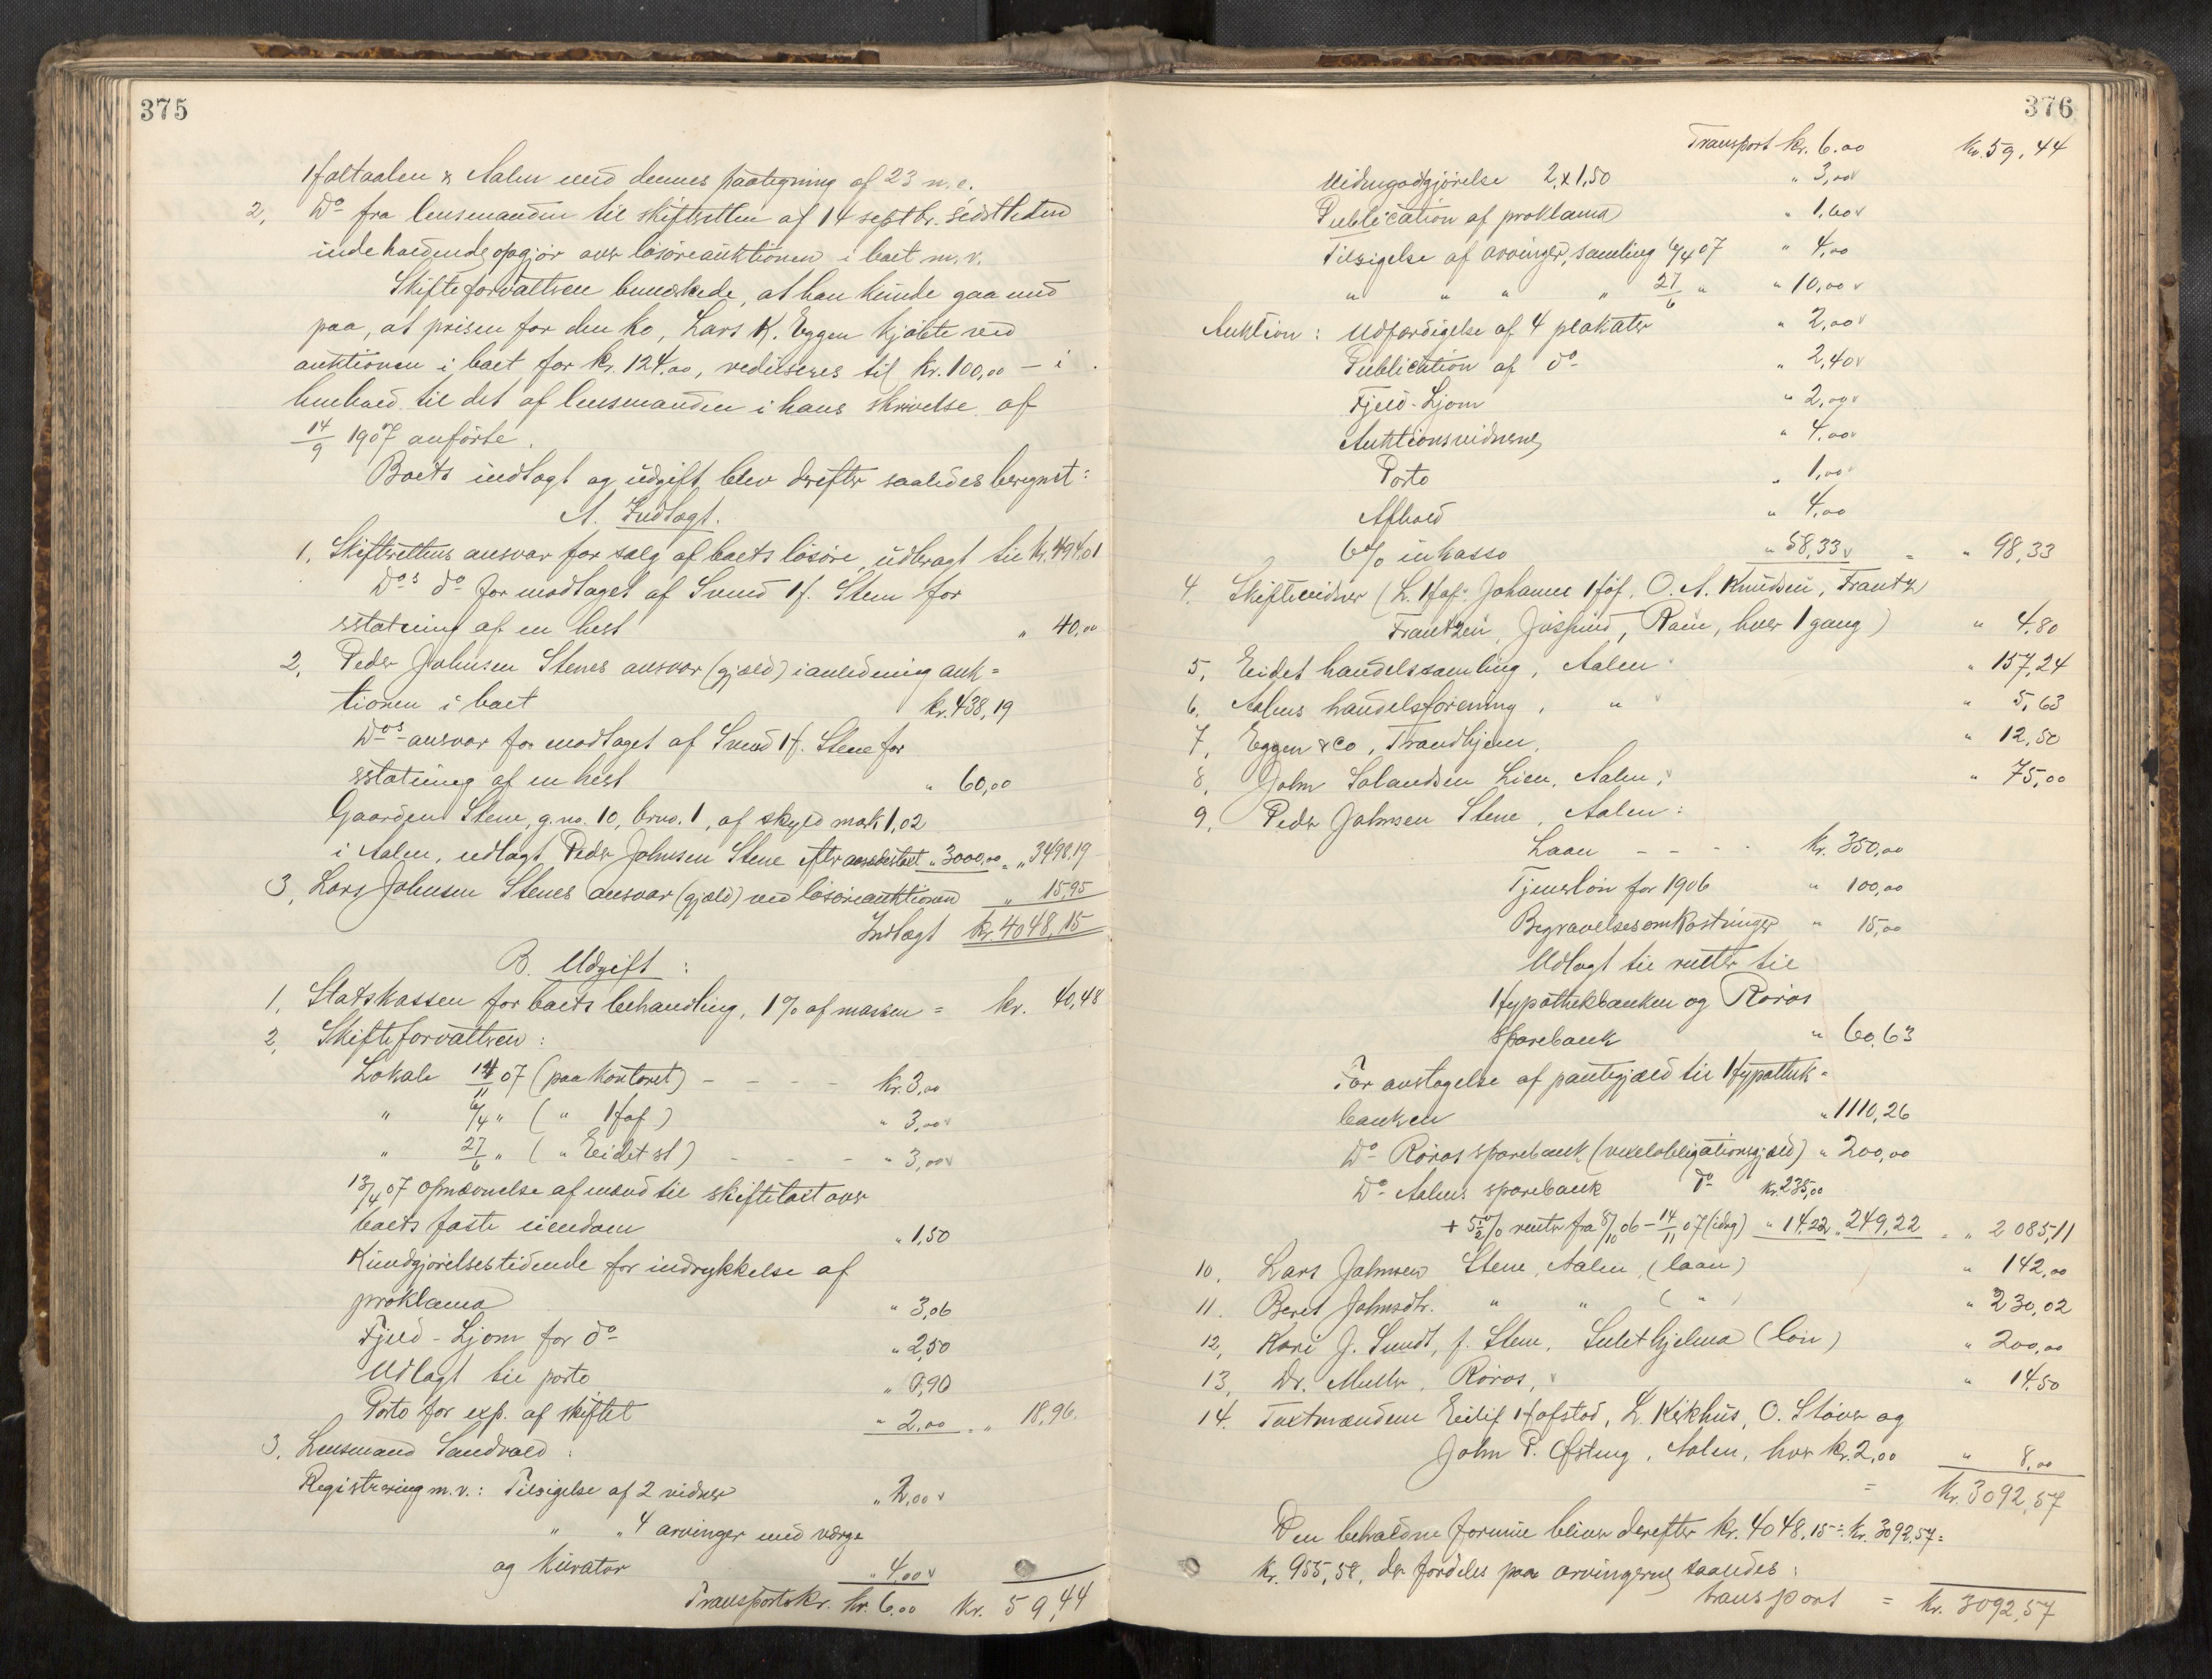 375
Holtaalen & Aalen med dennes paategning af 23 m. e.
2, Do fra lensmanden til skifteretten af 14 septbr. sidstleden
indeholdende opgjør over løsøreauktionen i boet m. v.
Skifteforvalteren bemerkede, at han kunde gaa med
paa, at prisen for den ko, Lars K. Eggen kjøbte ved
auktionen i boet for kr. 124.00, reduseres til kr. 100,00 – i
henhold til det af lensmanden i hans skrivelse af
14/9 1907 anførte.
Boets indtægt og udgift blev derefter saaledes beregnet:
A. Indtægt.
1, Skifterettens ansvar for salg af boets løsøre, udbragt til kr. 494,01
Dos do for modtaget af Svend H. Stene for
erstatning af en hest " 40,00
2, Peder Johnsen Stenes ansvar (gjæld) i anledning auk=
tionen i boet kr. 438,19
Dos ansvar for modtaget af Svend H. Stene for
erstatning af en hest " 60,00
Gaarden Stene, g. no. 10, brno. 1, af skyld mark 1,02
i Aalen, udlagt Peder Johnsen Stene efter " 3000,00 = " 3498,19
3, Lars Johnsen Stenes ansvar (gjæld) ved løsøreauktionen " 15,95
Indtægt kr. 4048,15
B. Udgift:
1, Statskassen for boets behandling, 1% af massen = kr. 40,48
2, Skifteforvalteren:
Lokale 14/11 07 (paa kontoret) – – – – kr. 3,00
" 6/4 " ( " Hof) " 3,00
" 27/6 " ( " Eidet st) – – – " 3,00
13/4 07 opnævnelse af mænd til skiftetaxt over
boets faste eiendom " 1,50
Kundgjørelsestidende for indrykkelse af
proklama " 3,06
Fjeld-Ljom for do " 2,50
Udlagt til porto " 0,90
Porto for exp. af skiftet " 2,00 = " 18,96.
3, Lensmand Sandvold:
Registrering m. v.: Tilsigelse af 2 vidner " 2,00
" " 4 arvinger med værge
og kurator " 4,00
Transport kr. kr. 6,00 kr. 59,44
376
Transport kr. 6.00 kr. 59,44
Vidnegodtgjørelse 2 x 1,50 " 3,00
Publication af proklama " 1,60
Tilsigelse af arvinger, samling 6/4 07 " 4,00
" " " " 27/6 " " 10,00
Auktion: Udfærdigelse af 4 plakater " 2,00
Publication af do " 2,40
Fjeld-Ljom " 2,00
Auktionsvidnerne " 4,00
Porto " 1,00
Afhold " 4,00
6% inkasso " 58,33 = " 98,33
4. Skiftevidner (L. Hof, Johannes Hof, O. A. Knudsen, Frantz
Frantzen, Rain, hver 1 gang) " 4,80
5, Eidet handelssamling, Aalen " 157,24
6, Aalens handelsforening, " " 5,63
7, Eggen & Co, Trondhjem, " 12,50
8, John Lien, Aalen, " 75,00
9, Peder Johnsen Stene, Aalen:
Laan – – – – kr. 350,00
Tjenerløn for 1906 " 100,00
Begravelsesomkostninger " 15,00
Udlagt til renter til
Hypothekbanken og Røros
sparebank " 60,63
For overtagelse af pantegjæld til Hypothek=
banken " 1110,26
Do Røros sparebank (vexelobligationsgjæld) " 200,00
Do Aalens sparebank do kr. 235,00
+ 5 1/2 % renter fra 8/10 06 – 14/11 07 (idag) " 14,22 " 249,22 = " 2085,11
10, Lars Johnsen Stene, Aalen, (laan) " 142,00
11. Beret Johnsdtr. " " ( " ) " 230,02
12, Kari J. Sundt, f. Stene, Sulithjelma (løn) " 200,00
13, Dr. Muller, Røros, " 14,50
14. Taxtmændene Eilif Hofstad, L. Kirkhus, O. Støver og
John P. Østeng, Aalen, hver kr. 2,00 " 8,00
= kr. 3092,57
Den beholdne formue bliver derefter kr. 4048,15 ÷ kr. 3092,57 =
kr. 955,58, der fordeles paa arvingerne saaledes:
transport = kr. 3092,57